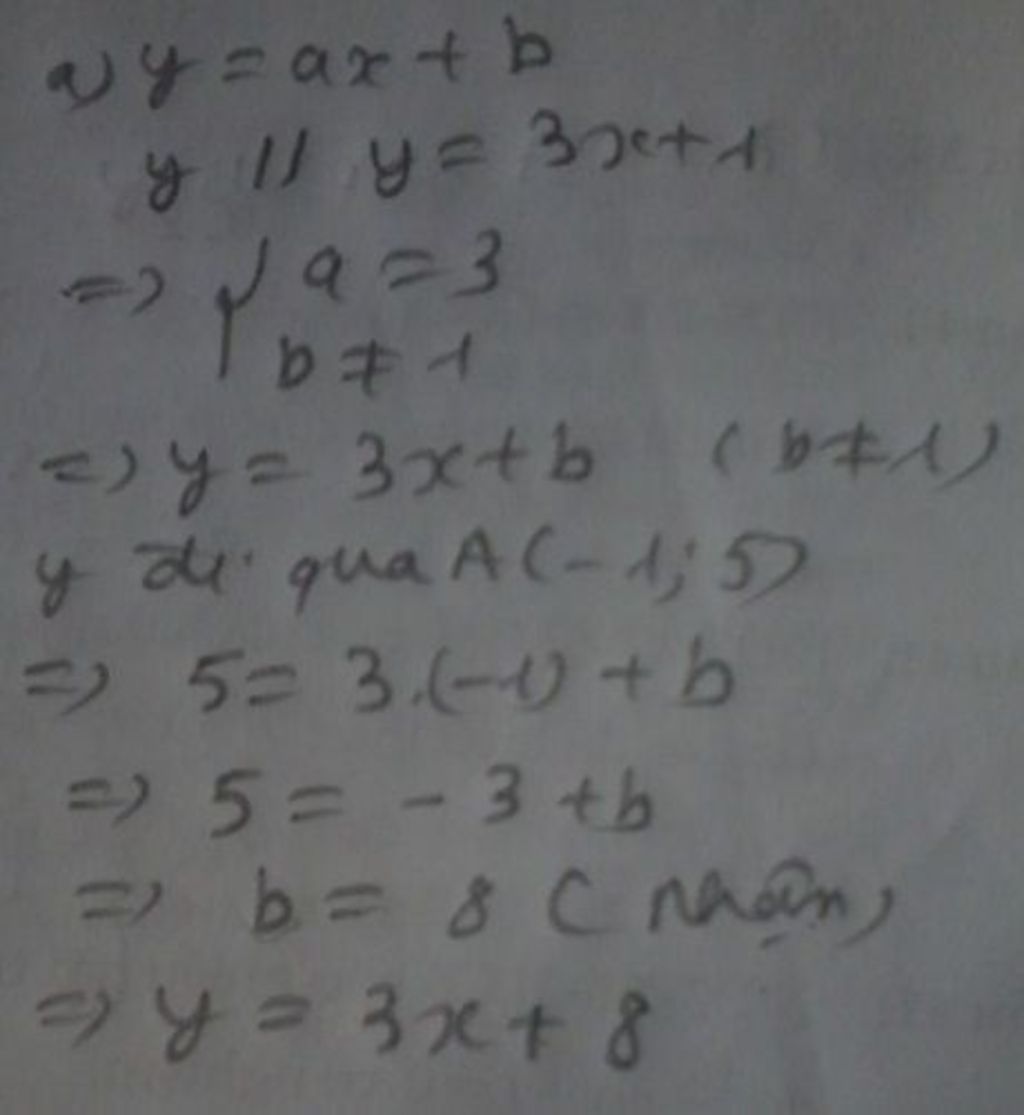 a) y = ax + b
y // y = 3x + 1
=> { a = 3
b ≠ 1
=> y = 3x + b ( b ≠ 1 )
y đi qua A ( - 1 ; 5 )
=> 5 = 3 . (-1) + b
=> 5 = - 3 + b
=> b = 8 ( nhận )
=> y = 3x + 8